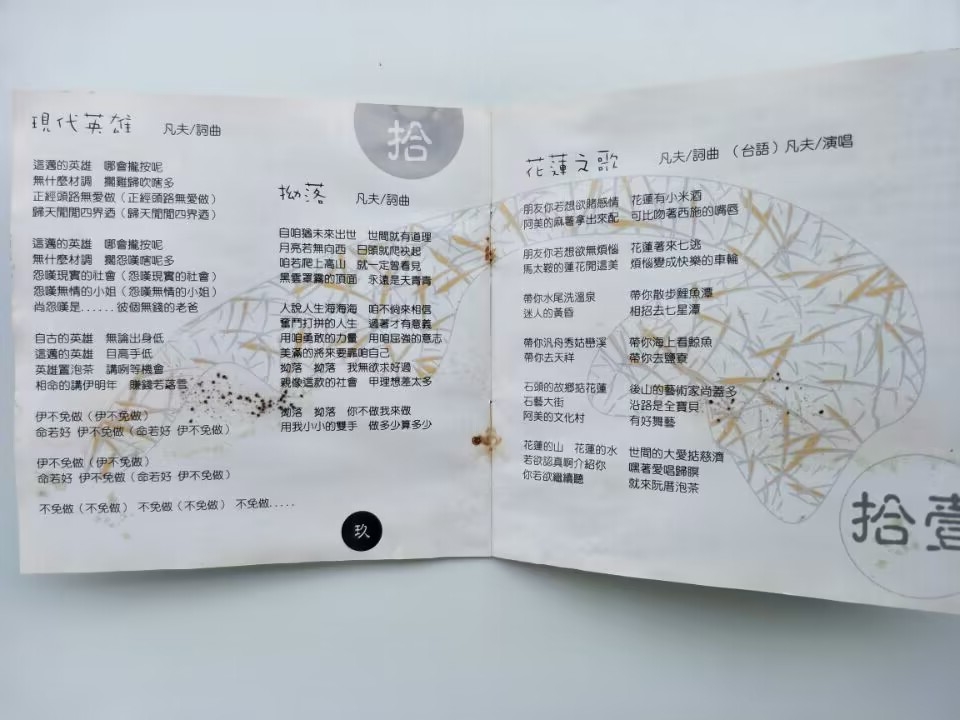 現代英雄 凡夫/詞曲
這邁的英雄 哪會攏按呢
無什麼材調 攔雞歸吹嗐多
正經頭路無愛做（正經頭路無愛做）
歸天閒閒四界迺（歸天閒閒四界迺）
這邁的英雄 哪會攏按呢
無什麼材調 攔怨嘆嗐呢多
怨嘆現實的社會（怨嘆現實的社會）
怨嘆無情的小姐（怨嘆無情的小姐）
尚怨嘆是......彼個無錢的老爸
自古的英雄 無論出身低
這邁的英雄 目高手低
英雄置泡茶 講咧等機會
相命的講伊明年 賺錢若落雪
伊不免做（伊不免做）
命若好 伊不免做（命若好 伊不免做）
伊不免做（伊不免做）
命若好 伊不免做（命若好 伊不免做）
不免做（不免做） 不免做（不免做） 不免做.....
玖
拾
拗落 凡夫/詞曲
自咱猶未來出世 世間就有道理
月亮若無向西 日頭就爬袂起
咱若爬上高山 就一定會看見
黑雲罩霧的頂面 永遠是天青青
人說人生海海海 咱不倘來相信
奮鬥打拼的人生 過著才有意義
用咱勇敢的力量 用咱屈強的意志
美滿的將來要靠咱自己
拗落 拗落 我無欲求好過
親像這款的社會 甲理想差太多
拗落 拗落 你不做我來做
用我小小的雙手 做多少算多少
花蓮之歌 凡夫/詞曲（台語）凡夫/演唱
朋友你若想欲賭感情 花蓮有小米酒
阿美的麻薯拿出來配 可比吻著西施的嘴唇
朋友你若想欲無煩惱 花蓮著來七逃
馬太鞍的蓮花開這美 煩惱變成快樂的車輪
帶你水尾洗溫泉 帶你散步鯉魚潭
迷人的黃昏 相招去七星潭
帶你汎舟秀姑巒溪 帶你海上看鯨魚
帶你去天祥 帶你去鹽寮
石頭的故鄉掂花蓮 後山的藝術家尚蓋多
石藝大街 沿路是全寶貝
阿美的文化村 有好舞藝
花蓮的山 花蓮的水 世間的大愛掂慈濟
若欲認真啊介紹你 嘿著愛唱歸暝
你若欲繼續聽 就來阮厝泡茶
拾壹